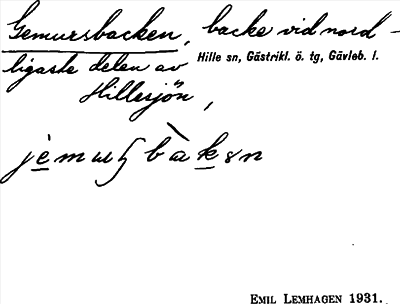 Gemursbacken, backe vid nord-
ligaste delen av Hille sn, Gästrikl. ö. tg, Gävleb. l.
Hillesjön,
EMIL LEMHAGEN 1931.